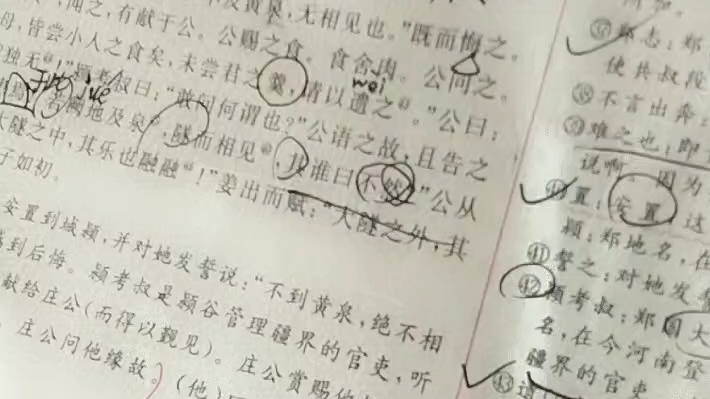 及黄泉，无相见也。”既而悔之。
闻之，有献于公。公赐之食。食舍肉。公问之。
母，皆尝小人之食矣，未尝君之羹，请以遗之。”公曰：
wei
独无！”颍考叔曰：“敢问何谓也？”公语之故，且告之
jue
若阙地及泉，隧而相见，其谁曰不然？”公从
大隧之中，其乐也融融！”姜出而赋：“大隧之外，其
子如初。
安置到城颍，并对她发誓说：“不到黄泉，绝不相
感到后悔。颍考叔是颍谷管理疆界的官吏，听
献给庄公(而得以觐见)。庄公赏赐他
庄公问他缘故。(他)回
㊲郑志：郑
使共叔段
㊳不言出奔：
㊴难之也：即
说啊。因为
㊵置：安置，这
颍：郑地名，在
㊶誓之：对她发誓
㊷颍考叔：郑国大
名，在今河南登
疆界的官吏
㊸遗